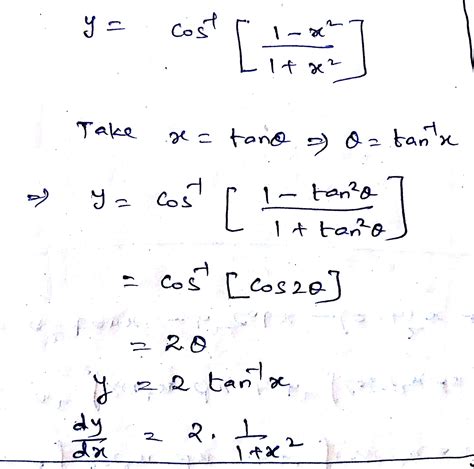 y = cos⁻¹ [ (1 - x²) / (1 + x²) ]
Take x = tanθ ⇒ θ = tan⁻¹x
⇒ y = cos⁻¹ [ (1 - tan²θ) / (1 + tan²θ) ]
= cos⁻¹ [cos2θ]
= 2θ
y = 2 tan⁻¹x
dy/dx = 2 · 1/(1+x²)